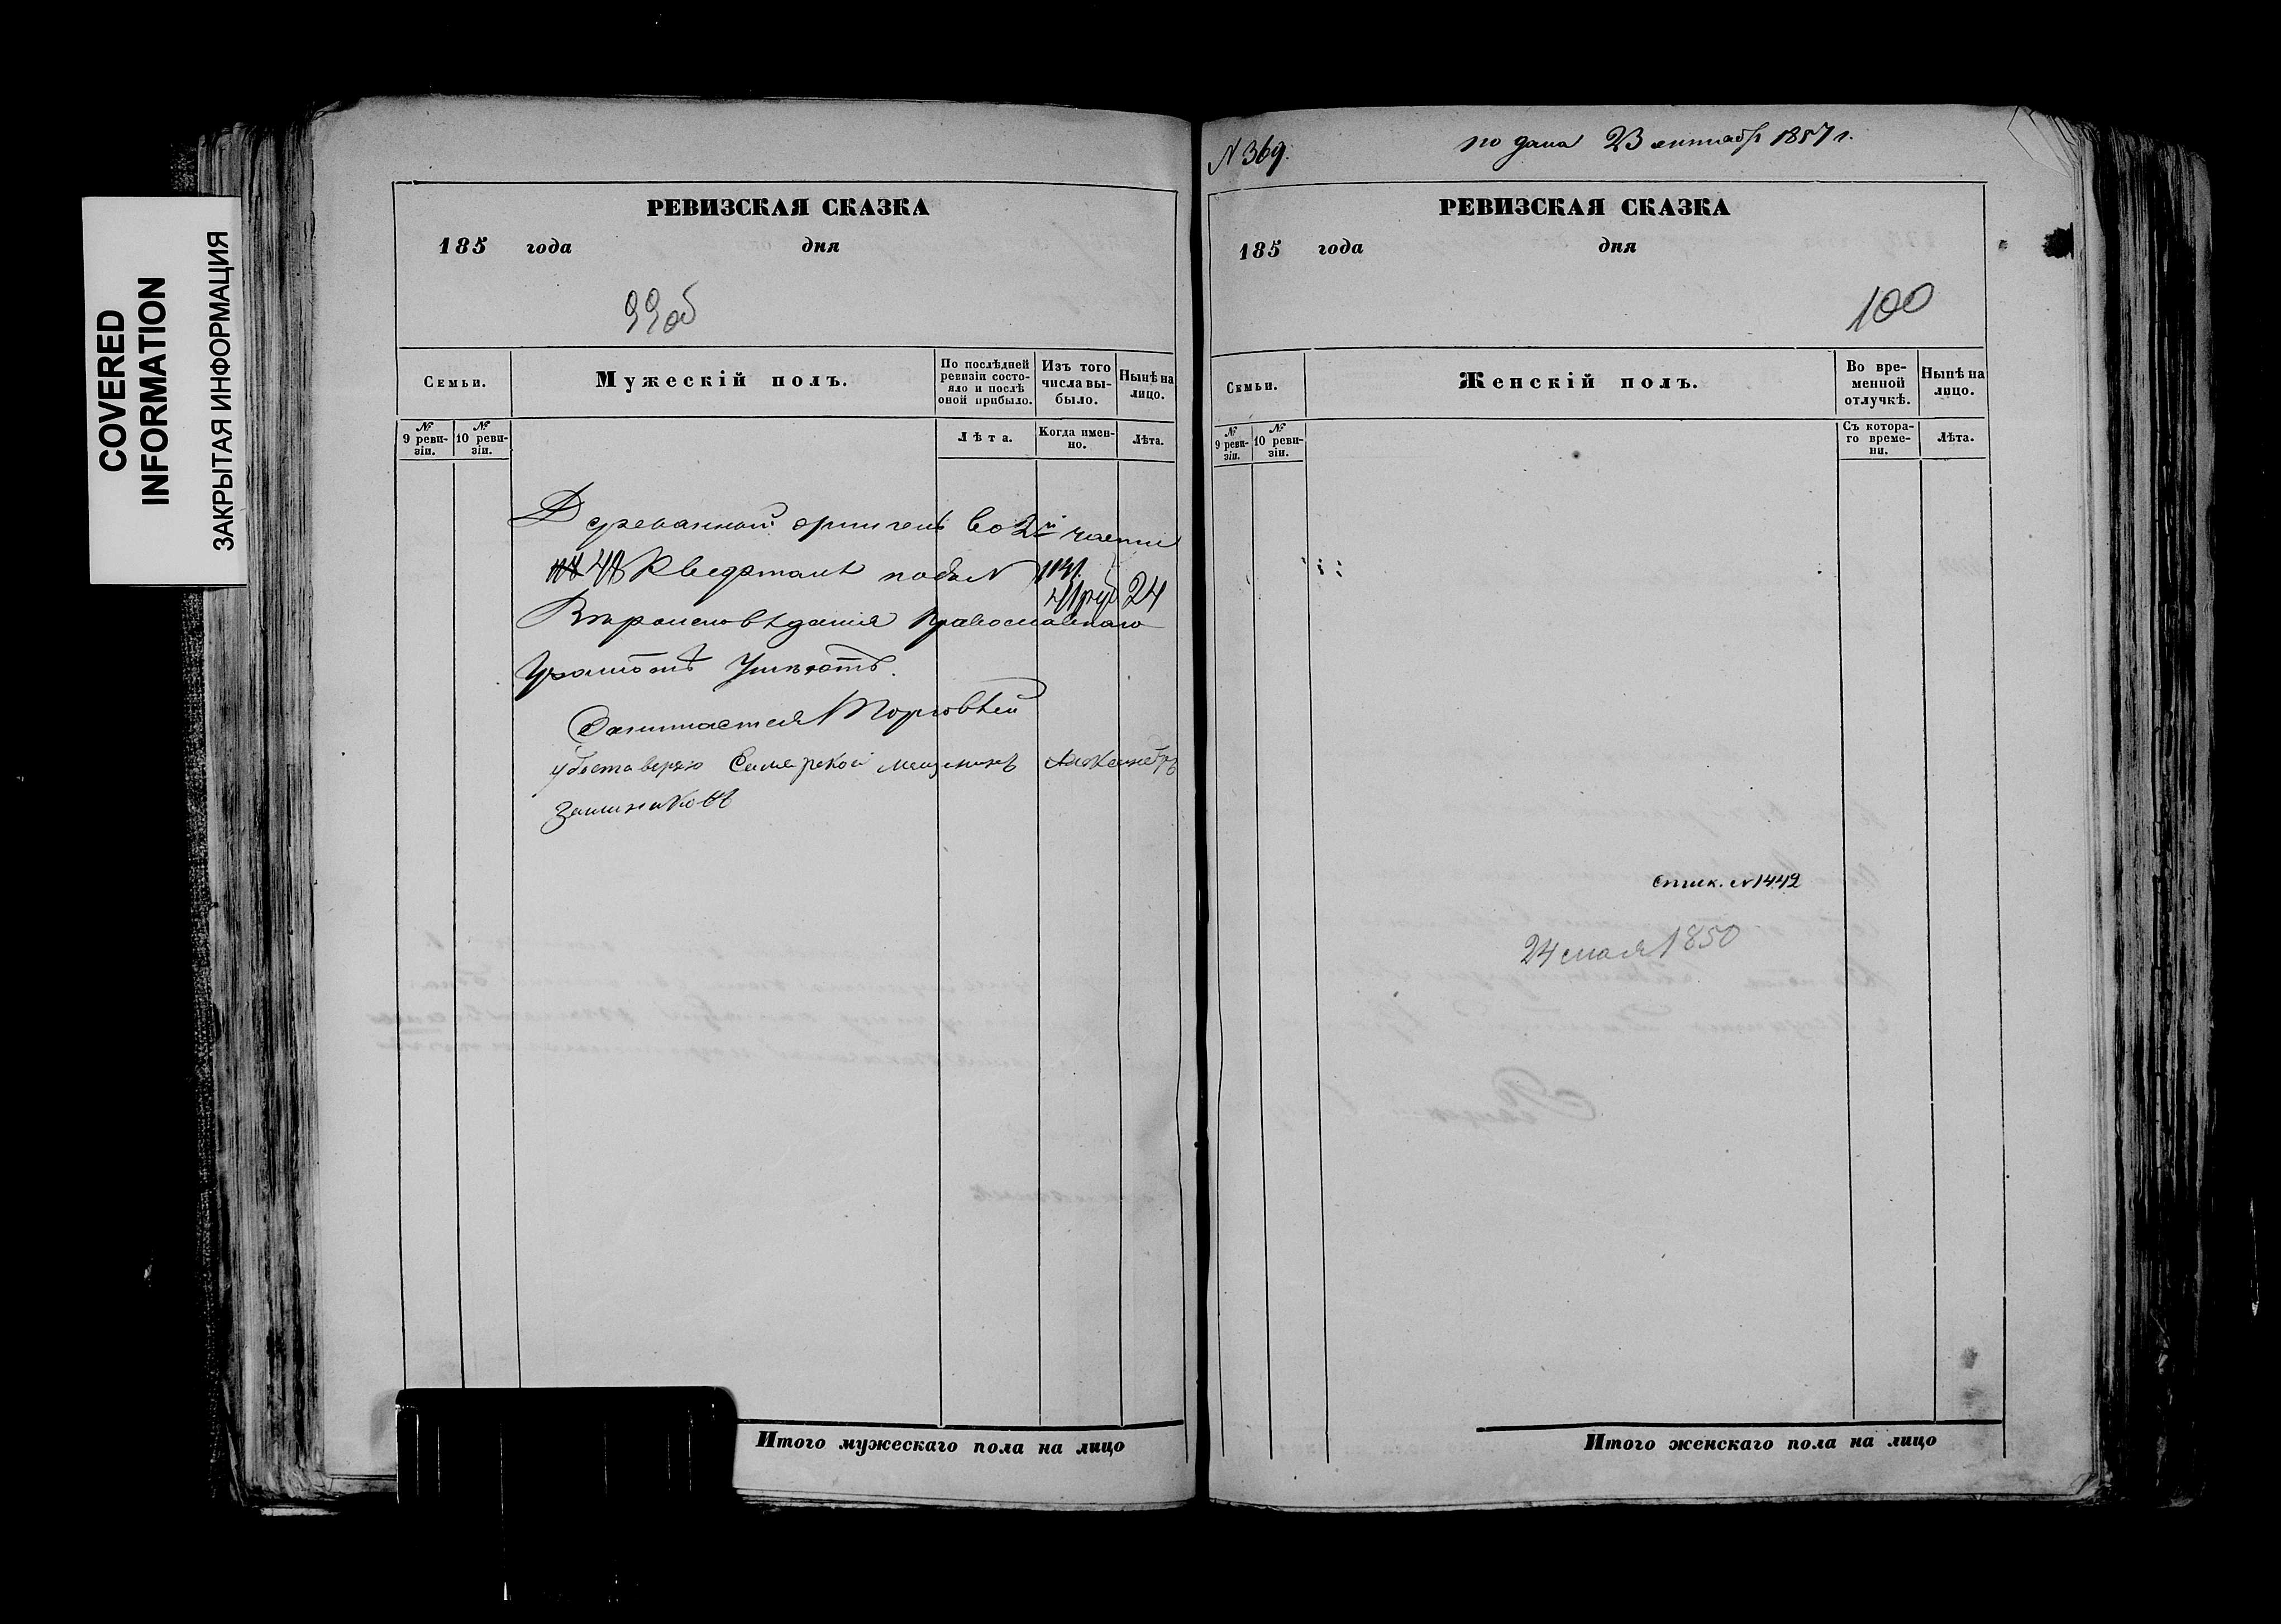 COVERED
INFORMATION
ЗАКРЫТАЯ ИНФОРМАЦИЯ
РЕВИЗСКАЯ СКАЗКА
185 года дня
99об
Семьи.
Мужескій полъ.
По послѣдней ревизіи состояло и послѣ оной прибыло.
Изъ того числа выбыло.
Нынѣ на лицо.
№ 9 ревизіи.
№ 10 ревизіи.
Лѣта.
Когда именно.
Лѣта.
во 2й части
48 подъ N 24
Вѣроисповѣданія Православнаго
Грамотѣ Умѣютъ.
Занимается Торговлей
Самарской мещанинъ Александръ
Итого мужескаго пола на лицо
N 369.
подана 23 октября 1857 г.
РЕВИЗСКАЯ СКАЗКА
185 года дня
100
Семьи.
Женскій полъ.
Во временной отлучкѣ.
Нынѣ на лицо.
№ 9 ревизіи.
№ 10 ревизіи.
Съ котораго времени.
Лѣта.
N 1442
24 мая 1850
Итого женскаго пола на лицо